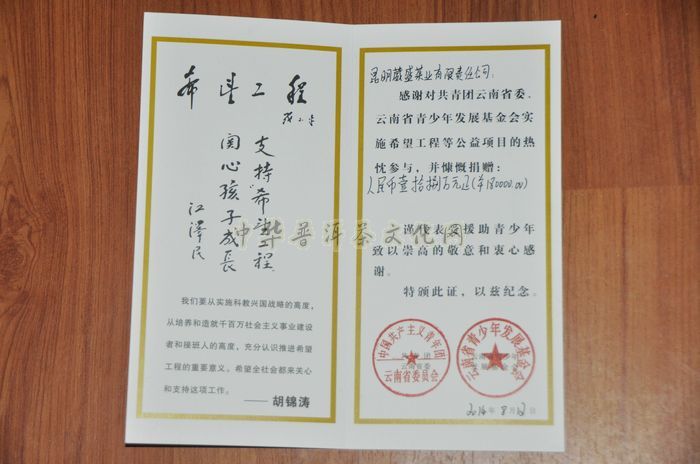 希望工程
邓小平
支持“希望工程”
关心孩子成长
江泽民
我们要从实施科教兴国战略的高度，
从培养和造就千百万社会主义事业建设
者和接班人的高度，充分认识推进希望
工程的重要意义。希望全社会都来关心
和支持这项工作。
——胡锦涛
昆明 盛茶业有限责任公司：
感谢对共青团云南省委、
云南省青少年发展基金会实
施希望工程等公益项目的热
忱参与，并慷慨捐赠：
人民币壹拾捌万元正(￥180000.00)
谨代表受援助青少年
致以崇高的敬意和衷心感
谢。
特颁此证，以兹纪念。
中国共产主义青年团
云南省委员会
共青团
云南省委
云南省青少年发展基金会
云南省青少年
发展基金会
年8月12日
中华普洱茶文化网